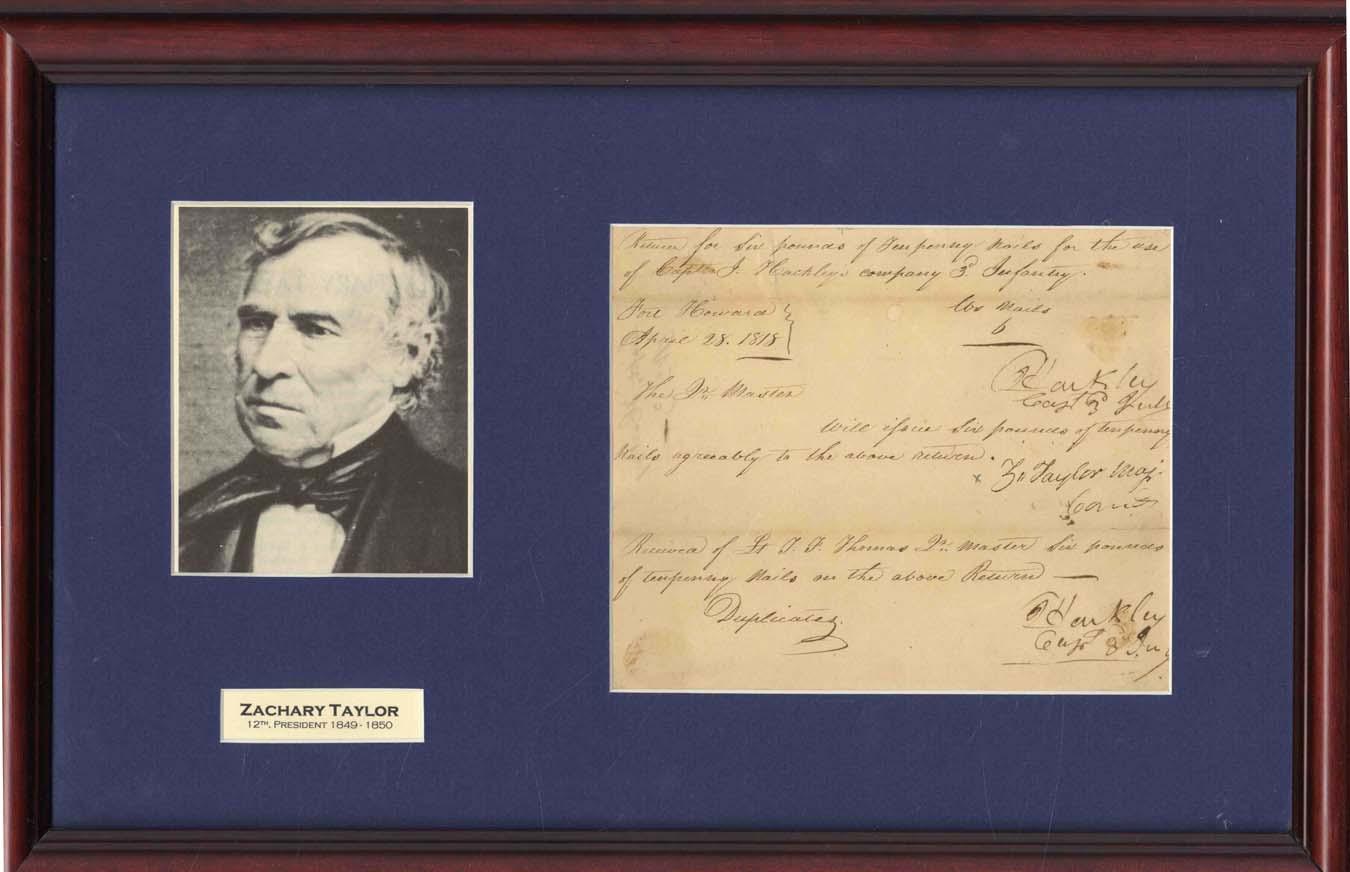 Return for Six pounds of Tenpenny Nails for the use
of Captn J. Hackleys company 3d Infantry.
Fort Howard
April 28. 1818
lbs Nails
6
Hackley
Capt 3
The Qr. Master
Will issue Six pounds of tenpenny
Nails agreeably to the above return.
x Z. Taylor Maj.
Received of Lt J. F. Thomas Qr. Master Six pounds
of tenpenny Nails on the above Return —
Duplicates.
Hackley
Capt 3 Inf
ZACHARY TAYLOR
12TH. PRESIDENT 1849 - 1850